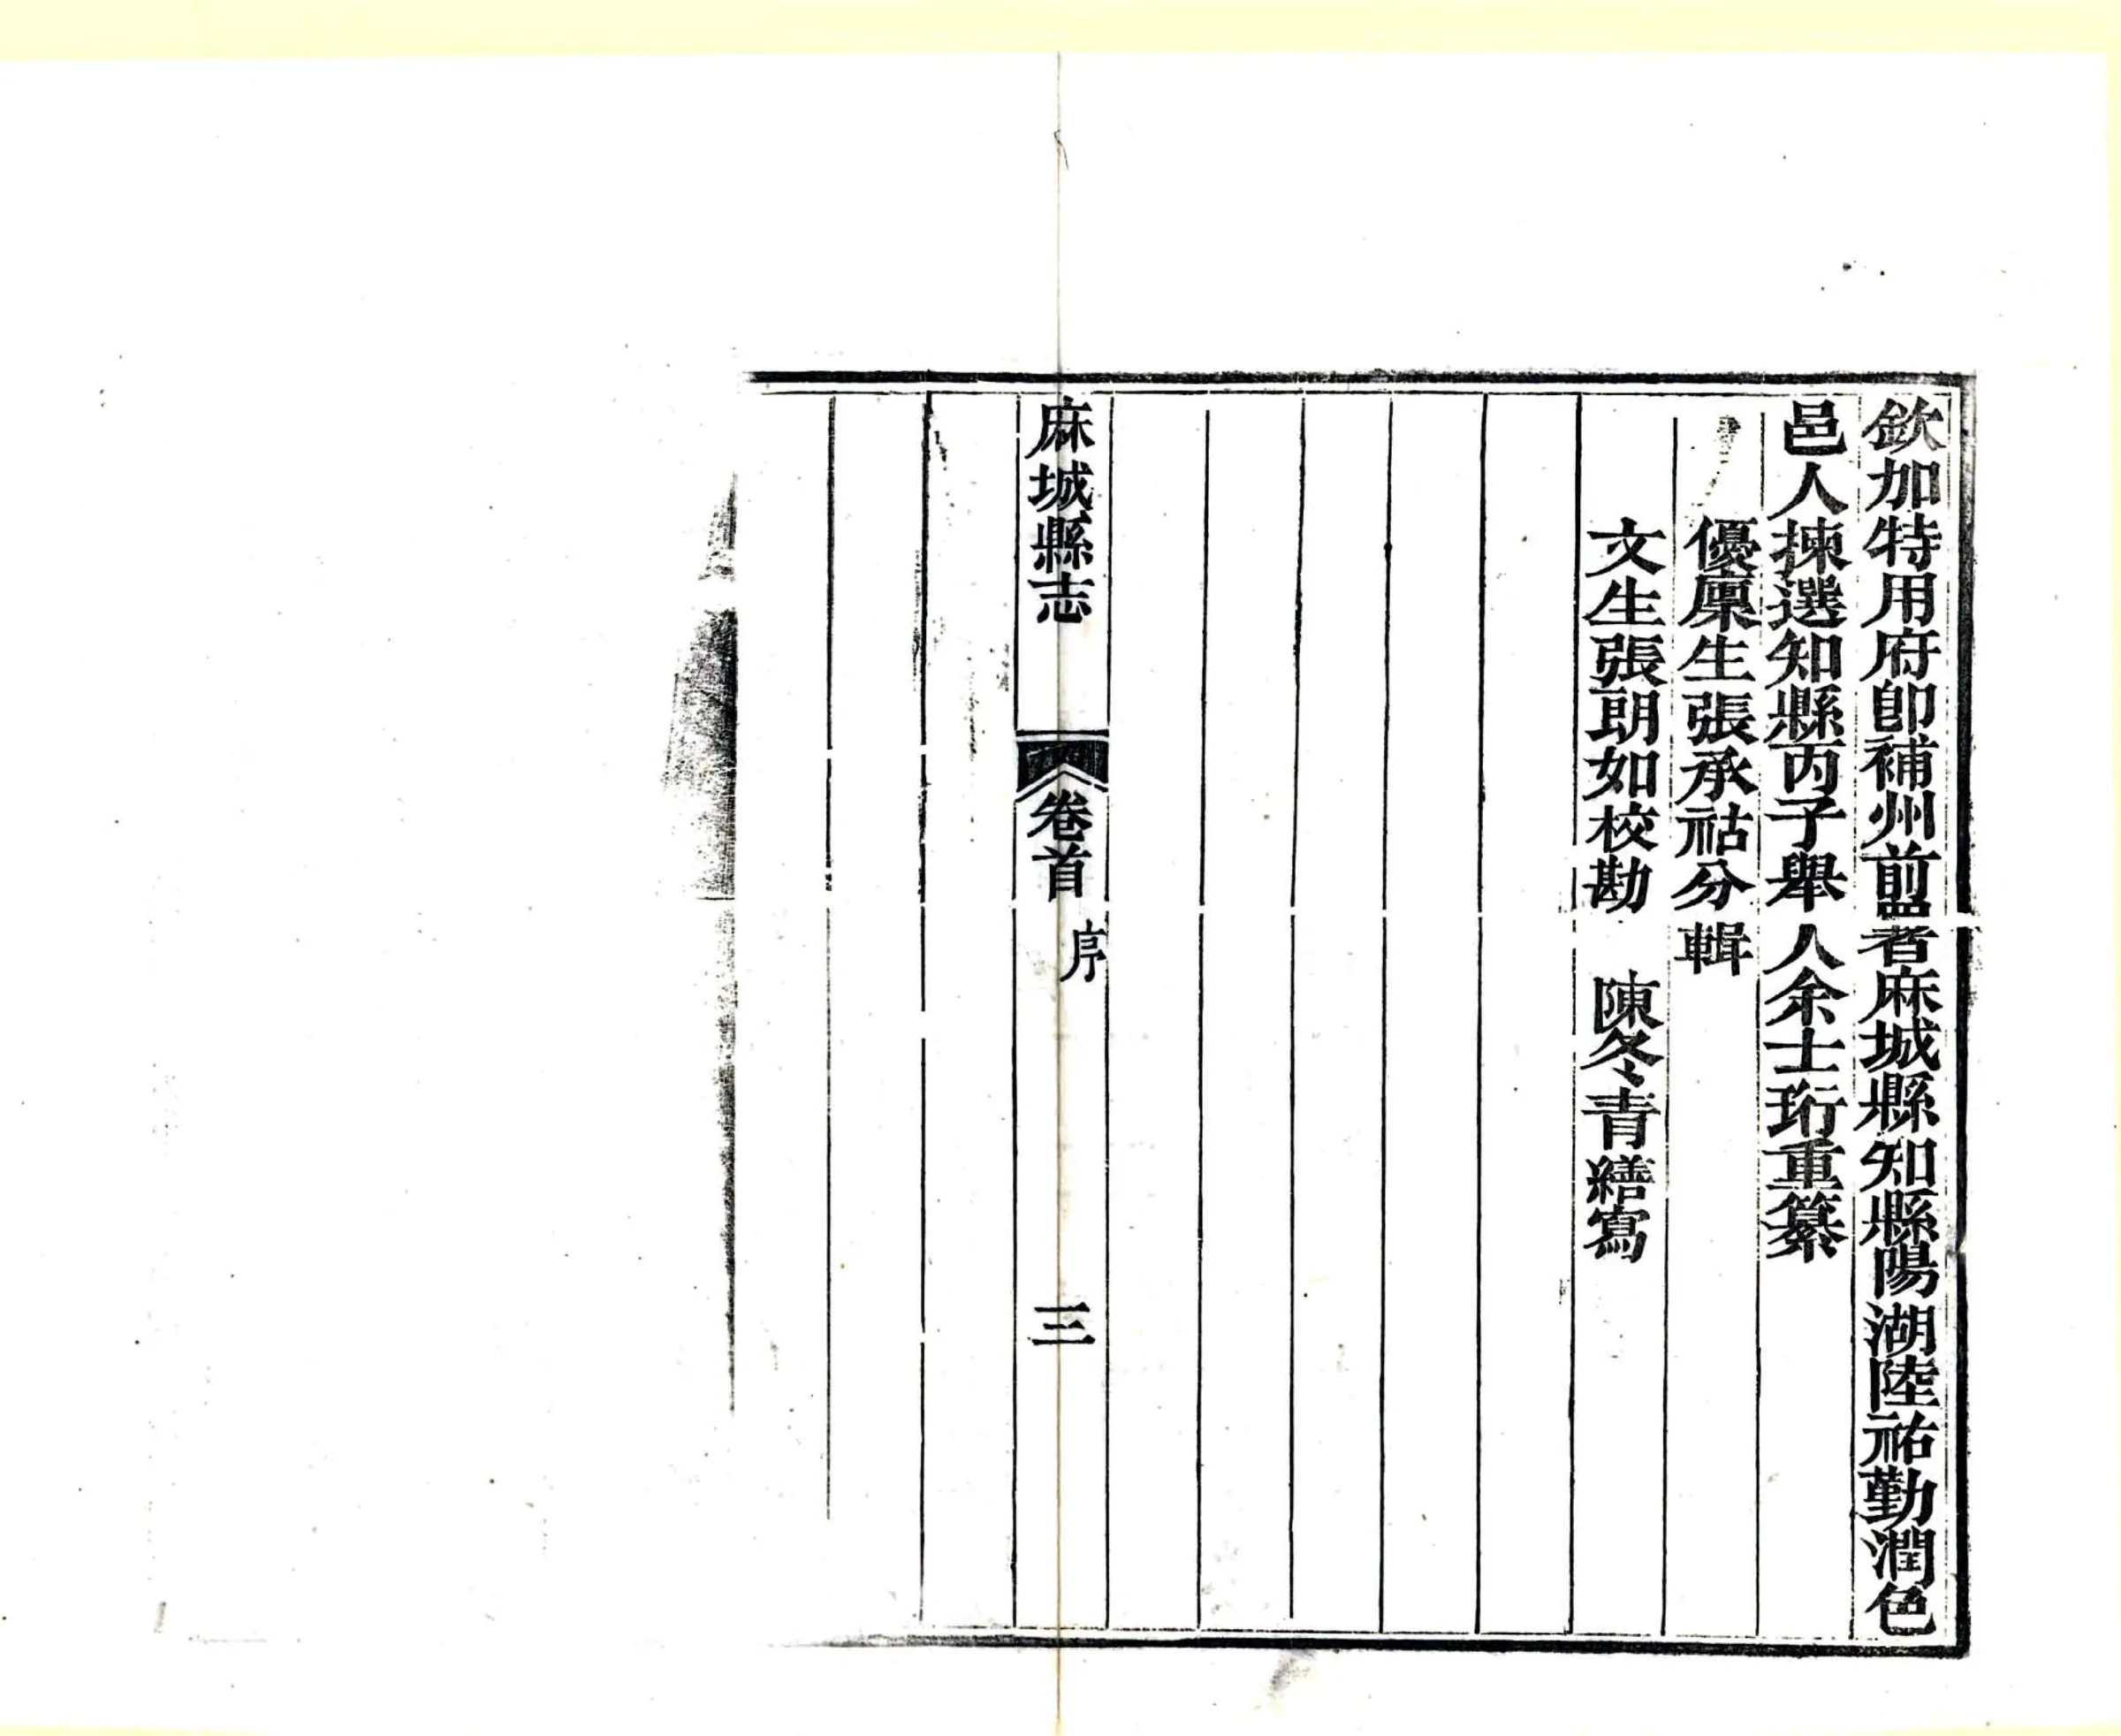 欽加特用府卽補州前署麻城縣知縣陽湖陸祐勤潤色
邑人揀選知縣丙子舉人余士珩重纂
優廩生張承祜分輯
文生張朗如校勘　陳冬青繕寫
麻城縣志　卷首　序　三